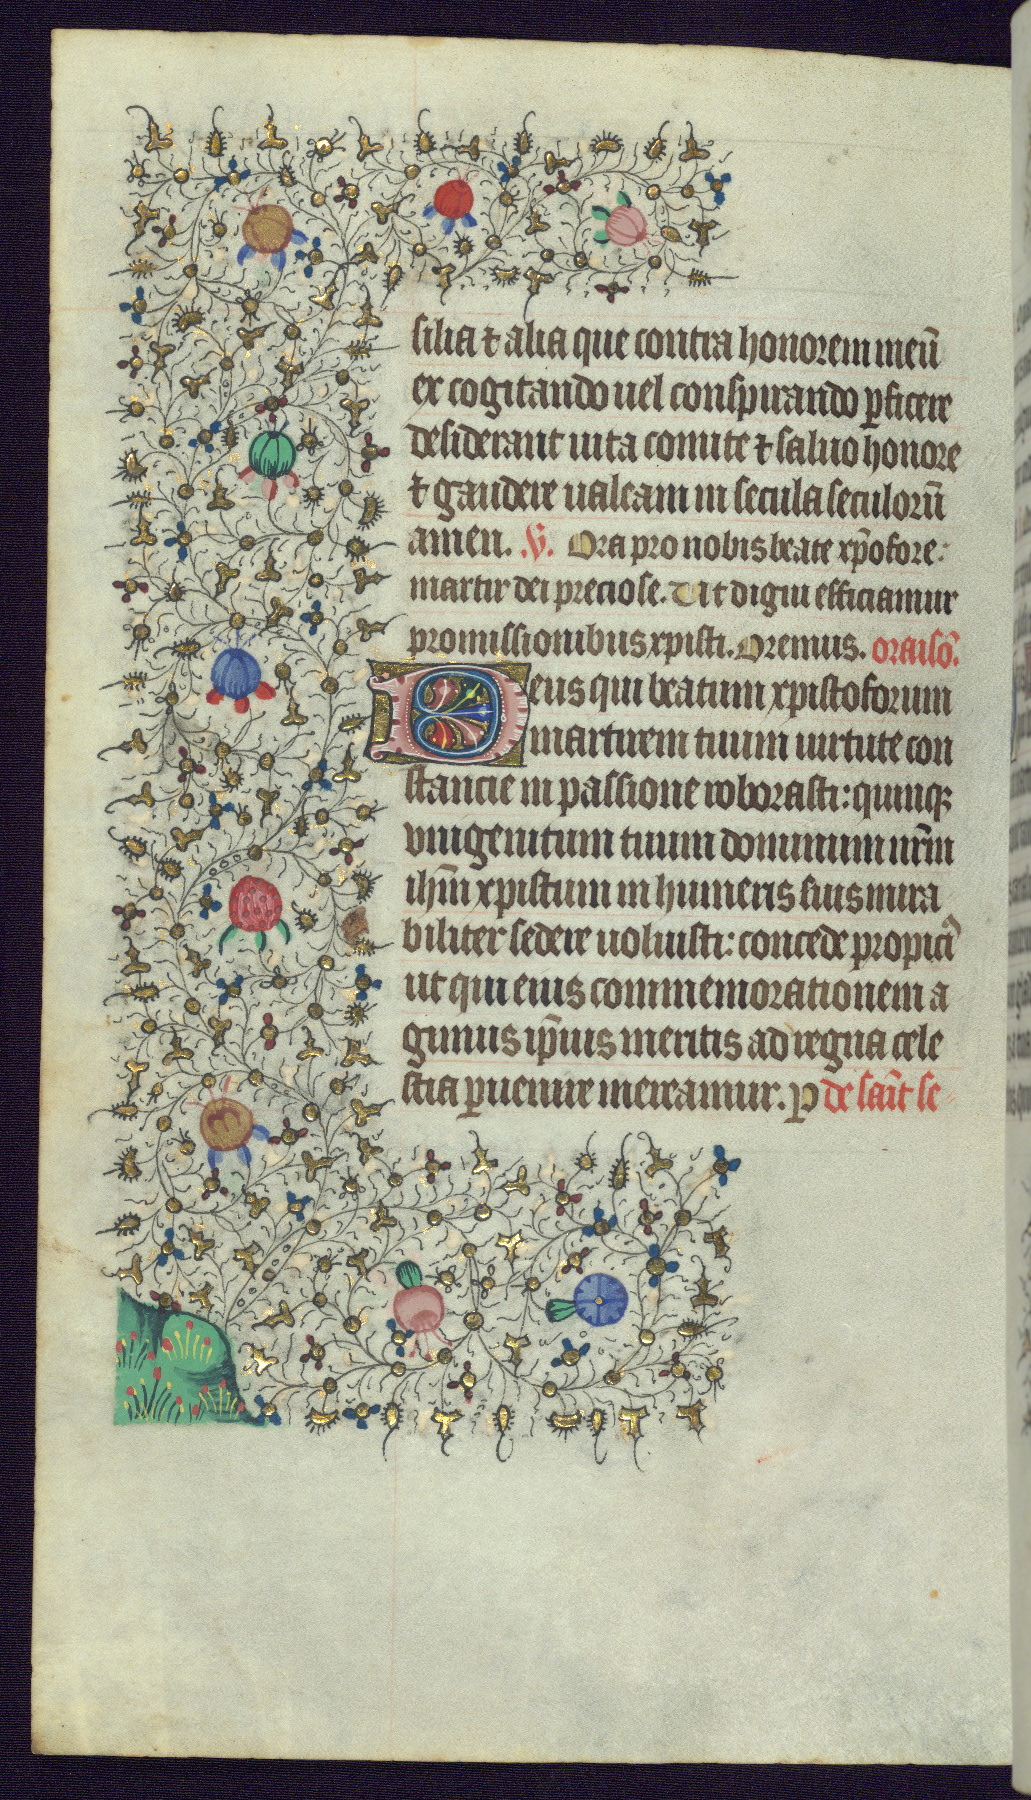 silia ⁊ alia que contra honorem meū
ex cogitando uel conspirando ꝑficere
desiderant uita comite ⁊ saluo honore
⁊ gaudere ualeam in secula seculorū
amen. V. Ora pro nobis beate xp̄ofore:
martir dei preciose. Ut digni efficiamur
promissionibus xpisti. Oremus. oraisō.
Deus qui beatum xpistoforum
martirem tuum uirtute con
stancie in passione roborasti: quinqꝫ
vnigenitum tuum dominum nr̄m
ih̄m xpistum in humeris suis mira
biliter sedere uoluisti: concede propici
ut qui eius commemorationem a
gimus ip̄ius meritis ad regna cele
stia ꝑuenire mereamur. p de saīt se